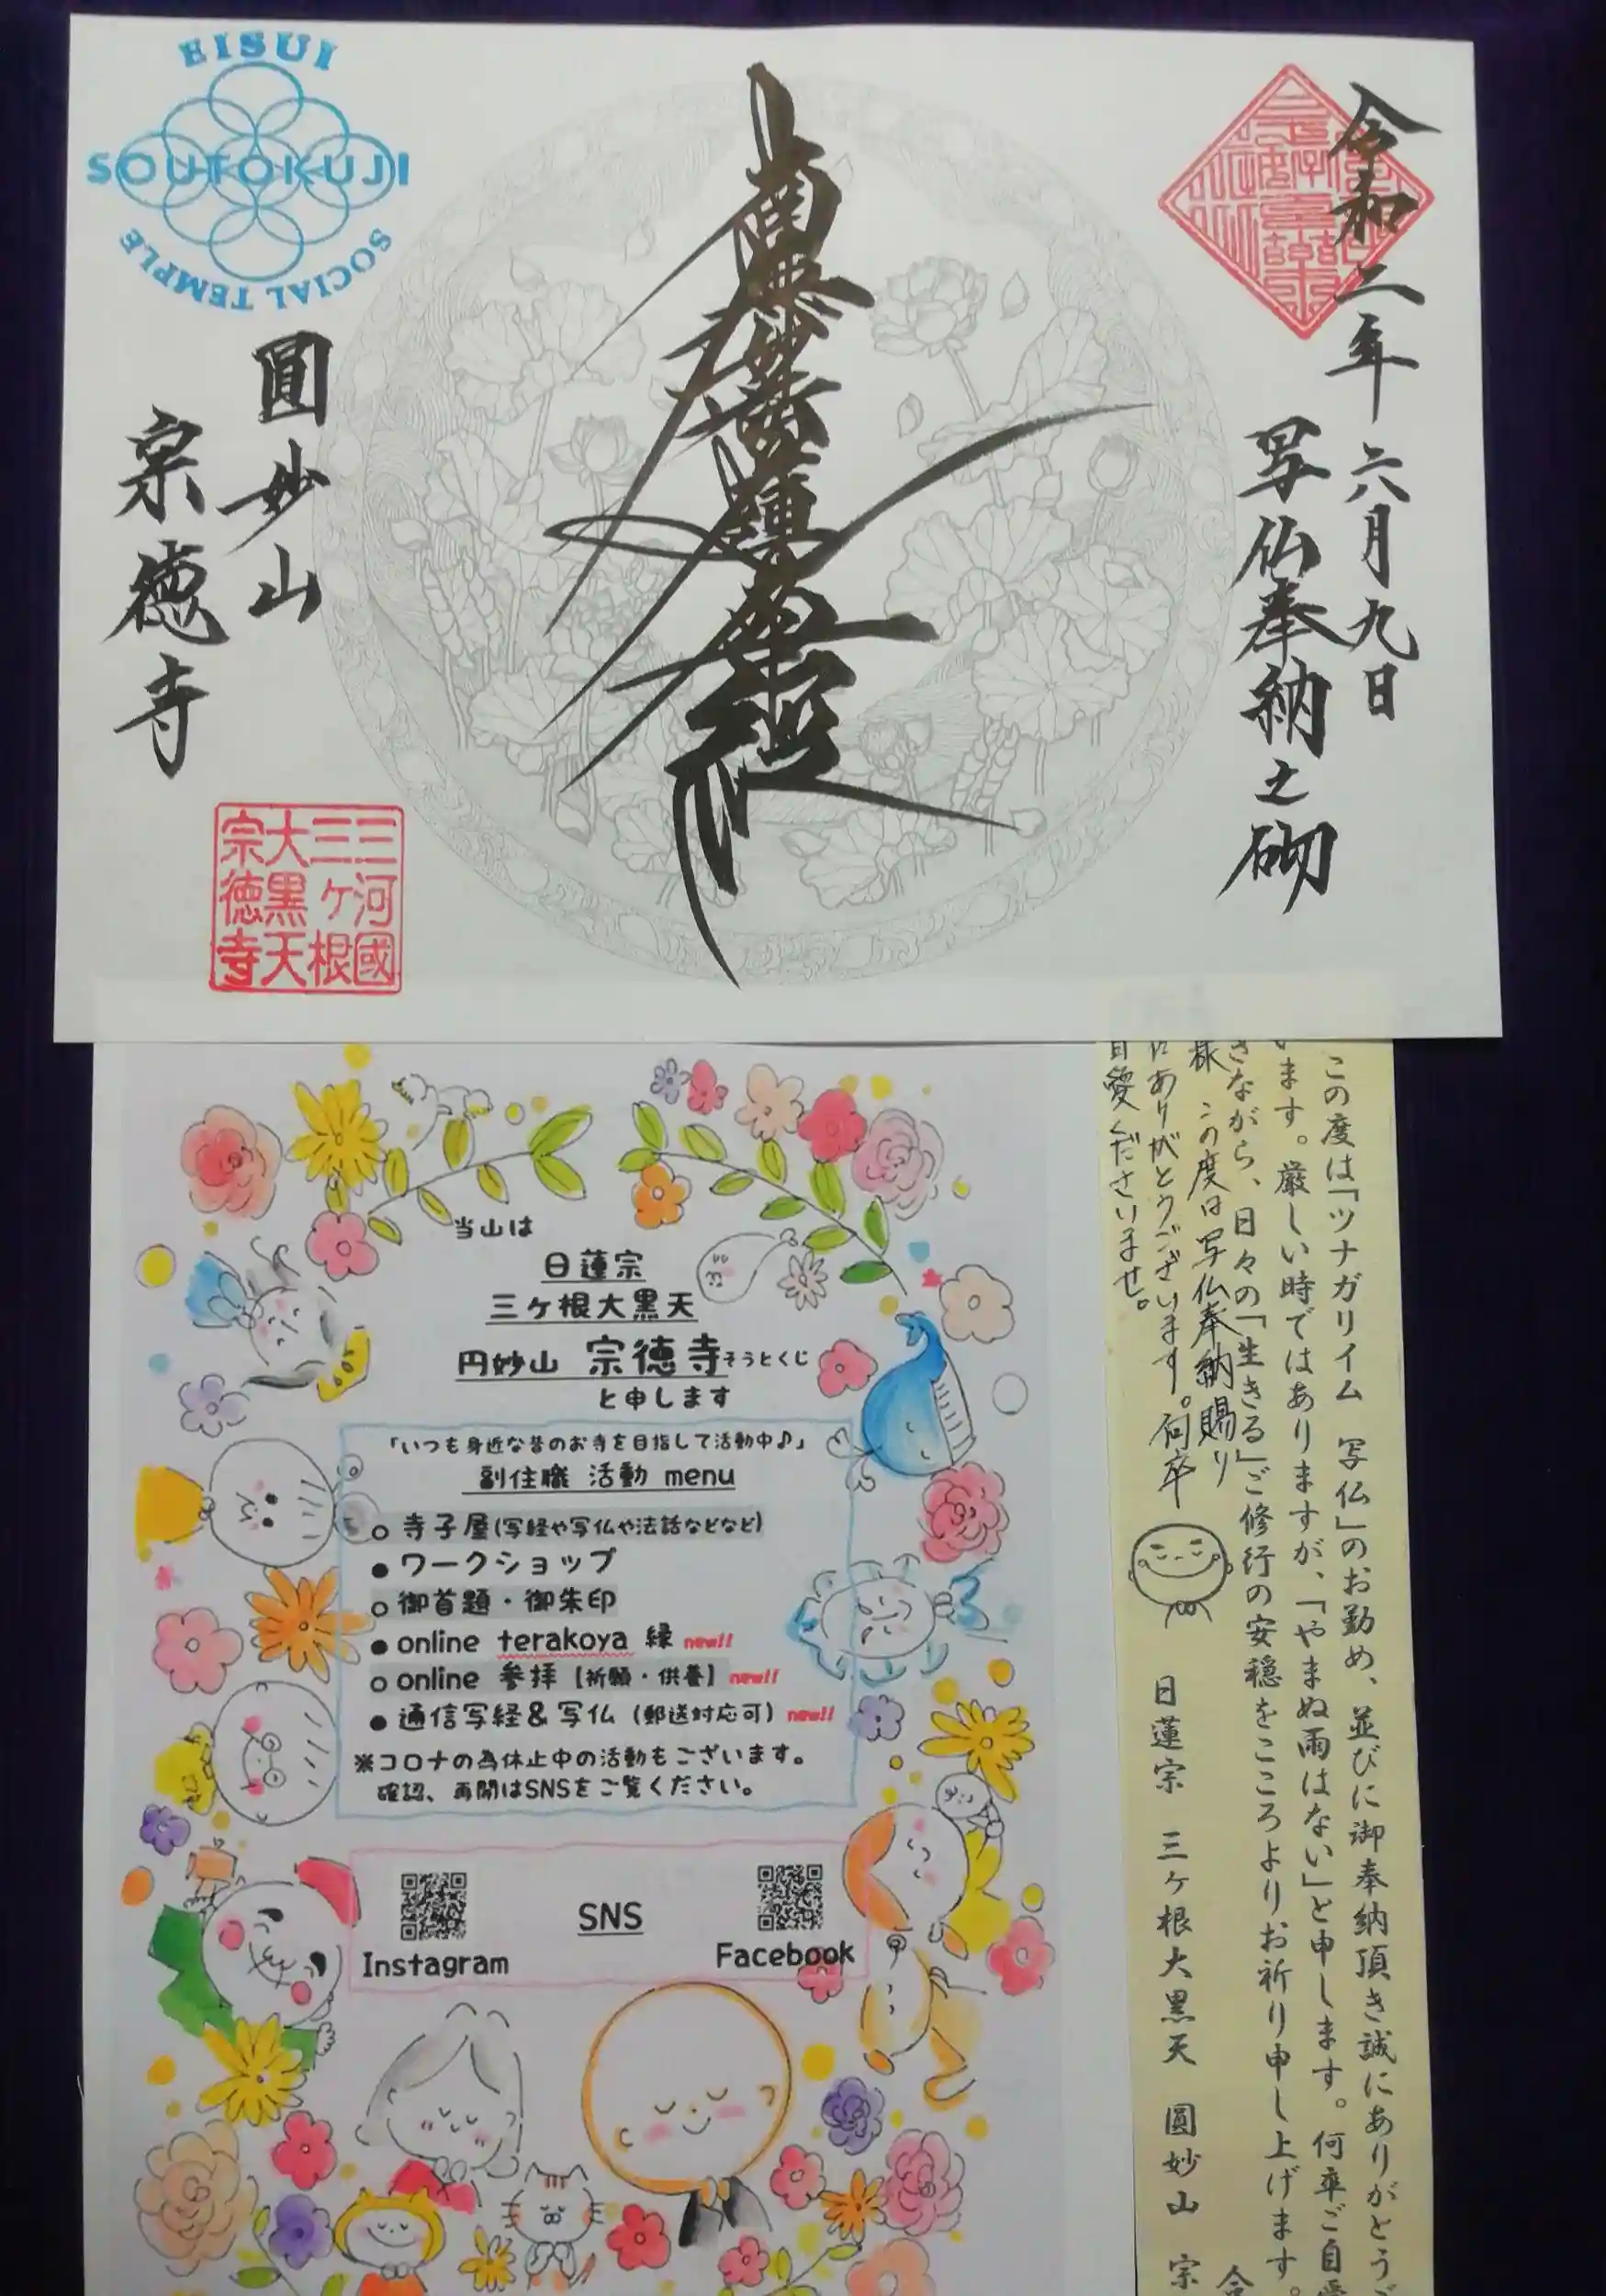 令和二年六月九日
写仏奉納之砌
南無妙法蓮華経
圓妙山
宗徳寺
EISUI
SOUTOKUJI
SOCIAL TEMPLE
三河國
三ヶ根
大黒天
宗徳寺
当山は
日蓮宗
三ヶ根大黒天
円妙山 宗徳寺そうとくじ
と申します
「いつも身近な昔のお寺を目指して活動中♪」
副住職 活動 menu
○ 寺子屋(写経や写仏や法話などなど)
● ワークショップ
○ 御首題・御朱印
● online terakoya 縁 new!!
○ online 参拝【祈願・供養】new!!
● 通信写経&写仏（郵送対応可）new!!
※コロナの為休止中の活動もございます。
確認、再開はSNSをご覧ください。
SNS
Instagram
Facebook
この度は「ツナガリイム 写仏」のお勤め、並びに御奉納頂き誠にありがとうご
います。厳しい時ではありますが、「やまぬ雨はない」と申します。何卒ご自愛
さながら、日々の「生きる」ご修行の安穏をこころよりお祈り申し上げます。
様 この度は写仏奉納賜り
にありがとうございます。何卒
自愛くださいませ。
日蓮宗 三ヶ根大黒天 圓妙山 宗